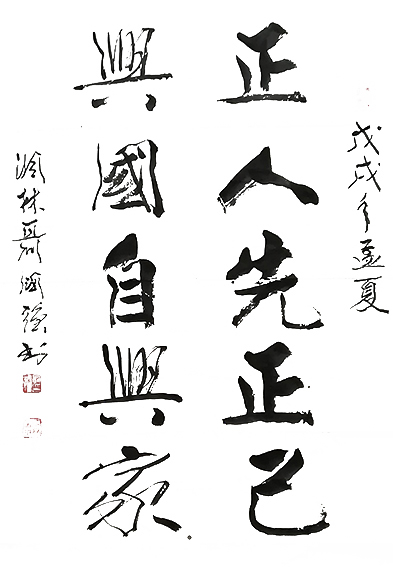 戊戌年孟夏
正人先正己
興國自興家
林 书